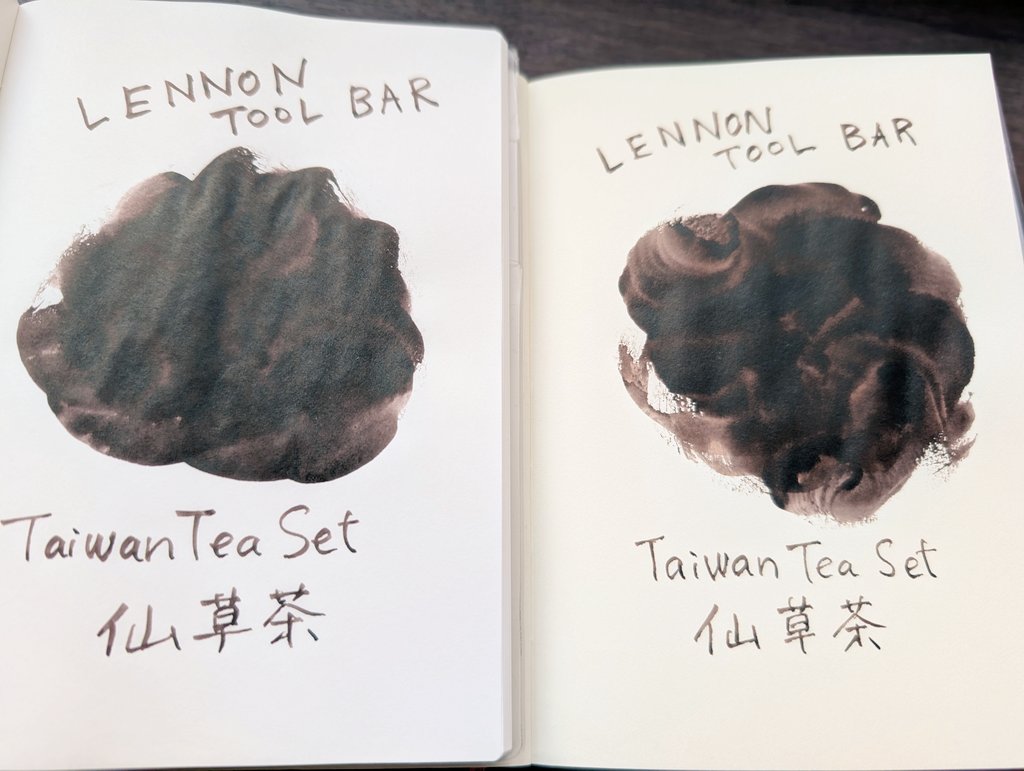 LENNON
TOOL BAR
Taiwan Tea Set
仙草茶
LENNON
TOOL BAR
Taiwan Tea Set
仙草茶